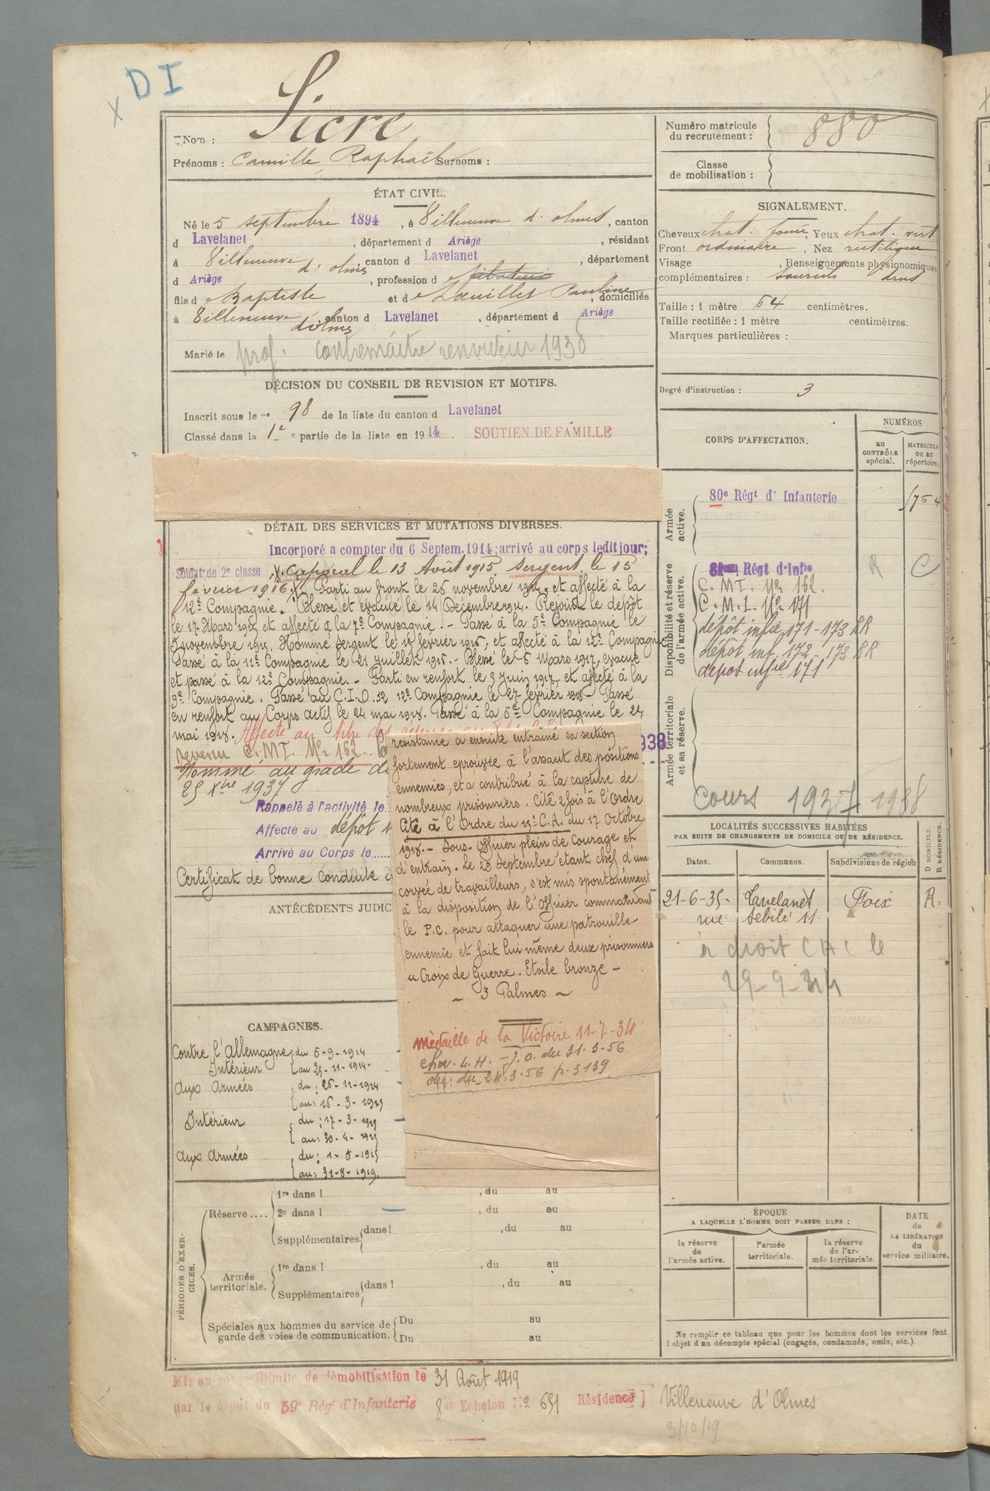 X DI
Nom : Sicre
Prénoms : Camille Raphaël Surnoms :
Numéro matricule du recrutement : 880
Classe de mobilisation :
ÉTAT CIVIL.
Né le 5 septembre 1894, à Villeneuve d'olmes, canton
d Lavelanet, département d Ariège, résidant
à Villeneuve d'olmes, canton d Lavelanet, département
d Ariège, profession d
fils d e Baptiste et d e Pauline, domiciliés
à Villeneuve d'olmes, canton d Lavelanet, département d Ariège
Marié le prof. contremaître 1930
SIGNALEMENT.
Cheveux chat. foncé, Yeux chat. vert
Front ordinaire, Nez rectiligne
Visage , Renseignements physionomiques
complémentaires : sourcils
Taille : 1 mètre 64 centimètres.
Taille rectifiée : 1 mètre centimètres.
Marques particulières :
Degré d'instruction : 3
DÉCISION DU CONSEIL DE REVISION ET MOTIFS.
Inscrit sous le n° 98 de la liste du canton d Lavelanet
Classé dans la 1e partie de la liste en 1914 SOUTIEN DE FAMILLE
DÉTAIL DES SERVICES ET MUTATIONS DIVERSES.
Incorporé à compter du 6 Septem. 1914; arrivé au corps ledit jour;
Soldat de 2e classe Caporal le 13 Août 1915 Sergent le 15
février 1916. Parti au front le 25 novembre 1914, et affecté à la
12e Compagnie. Blessé et évacué le 14 Décembre 1914. Rejoint le dépôt
le 17 Mars 1915 et affecté à la 7e Compagnie. - Passé à la 5e Compagnie le
novembre 1915. Nommé Sergent le 15 février 1916, et affecté à la 12e Compagnie
Passé à la 11e Compagnie le 21 juillet 1916. - Blessé le 6 Mars 1917, évacué
et passé à la 12e Compagnie. - Parti en renfort le 9 juin 1917 et affecté à la
9e Compagnie. Passé au C.I.D. 32 12e Compagnie le 27 février 1918 - Passé
en renfort au Corps actif le 24 mai 1918. Passé à la 5e Compagnie le 24
mai 1918. Affecté au titre
devenu C.M.I. No 162
Nommé au grade de
25 Xbre 1937
Rappelé à l'activité le
Affecté au dépôt
Arrivé au Corps le
Certificat de bonne conduite
938
résistance a ensuite entraîné sa section
fortement éprouvée à l'assaut des positions
ennemies, et a contribué à la capture de
nombreux prisonniers. Cité 2 fois à l'Ordre
Cité à l'Ordre du C.A. du 17 Octobre
1918. - Sous-Officier plein de courage et
d'entrain. Le 29 Septembre étant chef d'une
corvée de travailleurs, s'est mis spontanément
à la disposition de l'Officier commandant
le P.C. pour attaquer une patrouille
ennemie et fait lui même deux prisonniers
a Croix de Guerre. Etoile bronze -
- 3 Palmes -
médaille de la Victoire 11-7-34
chev. L.H. - J.O. du 31.3.56
déc. du 24.3.56 p. 3139
ANTÉCÉDENTS JUDIC
CAMPAGNES.
Contre l'Allemagne du 6-9-1914
Intérieur au 24-11-1914
aux Armées du : 25-11-1914
au : 16-3-1915
Intérieur du : 17-3-1915
au : 30-4-1915
aux Armées du : 1-5-1915
au : 31-8-1919
CORPS D'AFFECTATION.
NUMÉROS
AU CONTRÔLE spécial.
MATRICULE OU AU répertoire.
Armée active.
80e Régt d'Infanterie 1754
Disponibilité et réserve de l'armée active.
Régt d'infie R C
C.M.I. No 162
C.M.I. No 171
dépôt infie 171-173 RR
dépôt inf. 172-173 RR
dépôt infie 171
Armée territoriale et sa réserve.
Cours 1937 1938
LOCALITÉS SUCCESSIVES HABITÉES
PAR SUITE DE CHANGEMENTS DE DOMICILE OU DE RÉSIDENCE.
Dates. Communes. Subdivisions de région D. DOMICILE. R. RÉSIDENCE.
21-6-35- Lavelanet Foix R.
rue Sébile 11
a droit C H C le
29-9-34
PÉRIODES D'EXERCICES.
Réserve.... 1re dans l , du au
2e dans l , du au
Supplémentaires dans l , du au
Armée territoriale. 1re dans l , du au
Supplémentaires dans l , du au
Spéciales aux hommes du service de garde des voies de communication. Du au
Du au
ÉPOQUE
A LAQUELLE L'HOMME DOIT PASSER DANS :
la réserve de l'armée active.
l'armée territoriale.
la réserve de l'armée territoriale.
DATE de LA LIBÉRATION du service militaire.
Ne remplir ce tableau que pour les hommes dont les services font
l'objet d'un décompte spécial (engagés, condamnés, omis, etc.).
Mis en congé illimité de démobilisation le 31 Août 1919
par le dépôt du 59e Régt d'Infanterie 8e Echelon No 651 Résidence Villeneuve d'Olmes
3/10/19